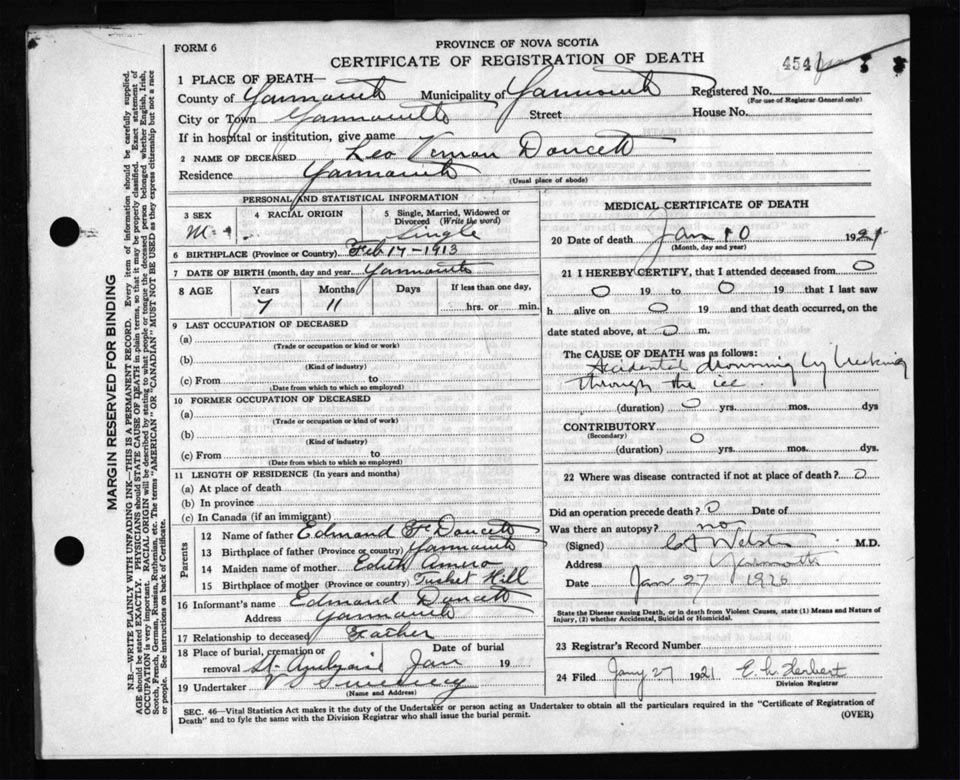 FORM 6
PROVINCE OF NOVA SCOTIA
CERTIFICATE OF REGISTRATION OF DEATH
454
1 PLACE OF DEATH—
County of Yarmouth Municipality of Yarmouth Registered No.
(For use of Registrar General only)
City or Town Yarmouth Street House No.
If in hospital or institution, give name
2 NAME OF DECEASED Leo Vernon Doucett
Residence Yarmouth
(Usual place of abode)
PERSONAL AND STATISTICAL INFORMATION
3 SEX 4 RACIAL ORIGIN 5 Single, Married, Widowed or Divorced (Write the word)
M Single
6 BIRTHPLACE (Province or Country) Feb 17-1913
7 DATE OF BIRTH (month, day and year Yarmouth
8 AGE Years Months Days If less than one day,
7 11 hrs. or min.
9 LAST OCCUPATION OF DECEASED
(a)
(Trade or occupation or kind or work)
(b)
(Kind of industry)
(c) From to
(Date from which to which so employed)
10 FORMER OCCUPATION OF DECEASED
(a)
(Trade or occupation or kind or work)
(b)
(Kind of industry)
(c) From to
(Date from which to which so employed)
11 LENGTH OF RESIDENCE (In years and months)
(a) At place of death
(b) In province
(c) In Canada (if an immigrant)
Parents
12 Name of father Edmand Doucett
13 Birthplace of father (Province or country) Yarmouth
14 Maiden name of mother Edith Amiro
15 Birthplace of mother (Province or country) Tusket Hill
16 Informant's name Edmand Doucett
Address Yarmouth
17 Relationship to deceased Father
18 Place of burial, cremation or removal St. Jan Date of burial 19
19 Undertaker V Sweeney
(Name and Address)
MEDICAL CERTIFICATE OF DEATH
20 Date of death Jan 10 1921
(Month, day and year)
21 I HEREBY CERTIFY, that I attended deceased from 0
0 19 to 0 19 that I last saw
h alive on 0 19 and that death occurred, on the
date stated above, at 0 m.
The CAUSE OF DEATH was as follows:
Accidental drowning by breaking
through the ice
(duration) 0 yrs. mos. dys
CONTRIBUTORY
(Secondary) 0
(duration) yrs. mos. dys.
22 Where was disease contracted if not at place of death? 0
Did an operation precede death? 0 Date of
Was there an autopsy? no
(Signed) Webster M.D.
Address Yarmouth
Date Jan 27 1926
State the Disease causing Death, or in death from Violent Causes, state (1) Means and Nature of
Injury, (2) whether Accidental, Suicidal or Homicidal.
23 Registrar's Record Number
24 Filed Jany 27 1921 Herbert
Division Registrar
SEC. 46—Vital Statistics Act makes it the duty of the Undertaker or person acting as Undertaker to obtain all the particulars required in the "Certificate of Registration of
Death" and to fyle the same with the Division Registrar who shall issue the burial permit. (OVER)
MARGIN RESERVED FOR BINDING
N.B.—WRITE PLAINLY WITH UNFADING INK—THIS IS A PERMANENT RECORD. Every item of information should be carefully supplied.
AGE should be stated EXACTLY. PHYSICIANS should STATE CAUSE OF DEATH in plain terms, so that it may be properly classified. Exact statement of
OCCUPATION is very important. RACIAL ORIGIN will be described by stating to what people or tongue the deceased person belonged whether English, Irish,
Scotch, French, German, Russian, Ruthenian, etc. The terms "AMERICAN" OR "CANADIAN" MUST NOT BE USED as they express citizenship but not a race
or people. See instructions on back of Certificate.